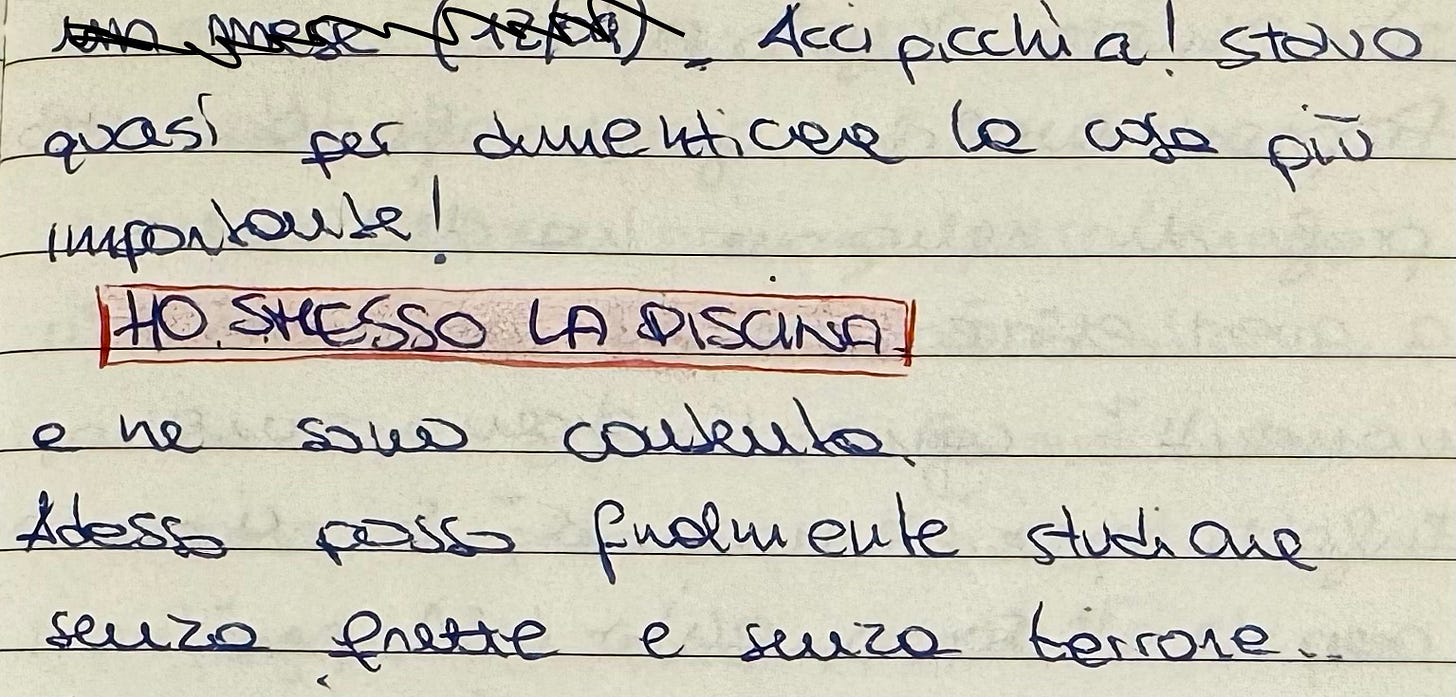 un mese (12/09). Accipicchia! stavo
quasi per dimenticare la cosa più
importante!
HO SMESSO LA PISCINA.
e ne sono contento.
Adesso posso finalmente studiare
senza frette e senza terrore..